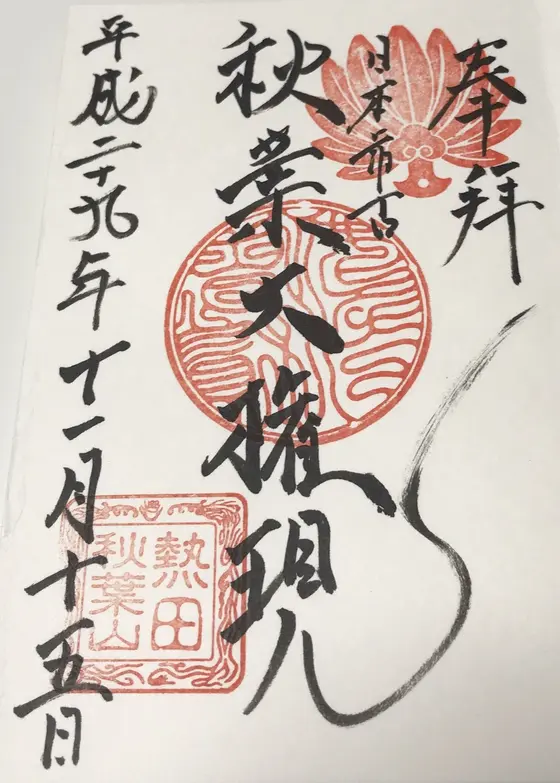 奉拝
日本希古
秋葉大権現
平成二十九年十一月十五日
熱田
秋葉山